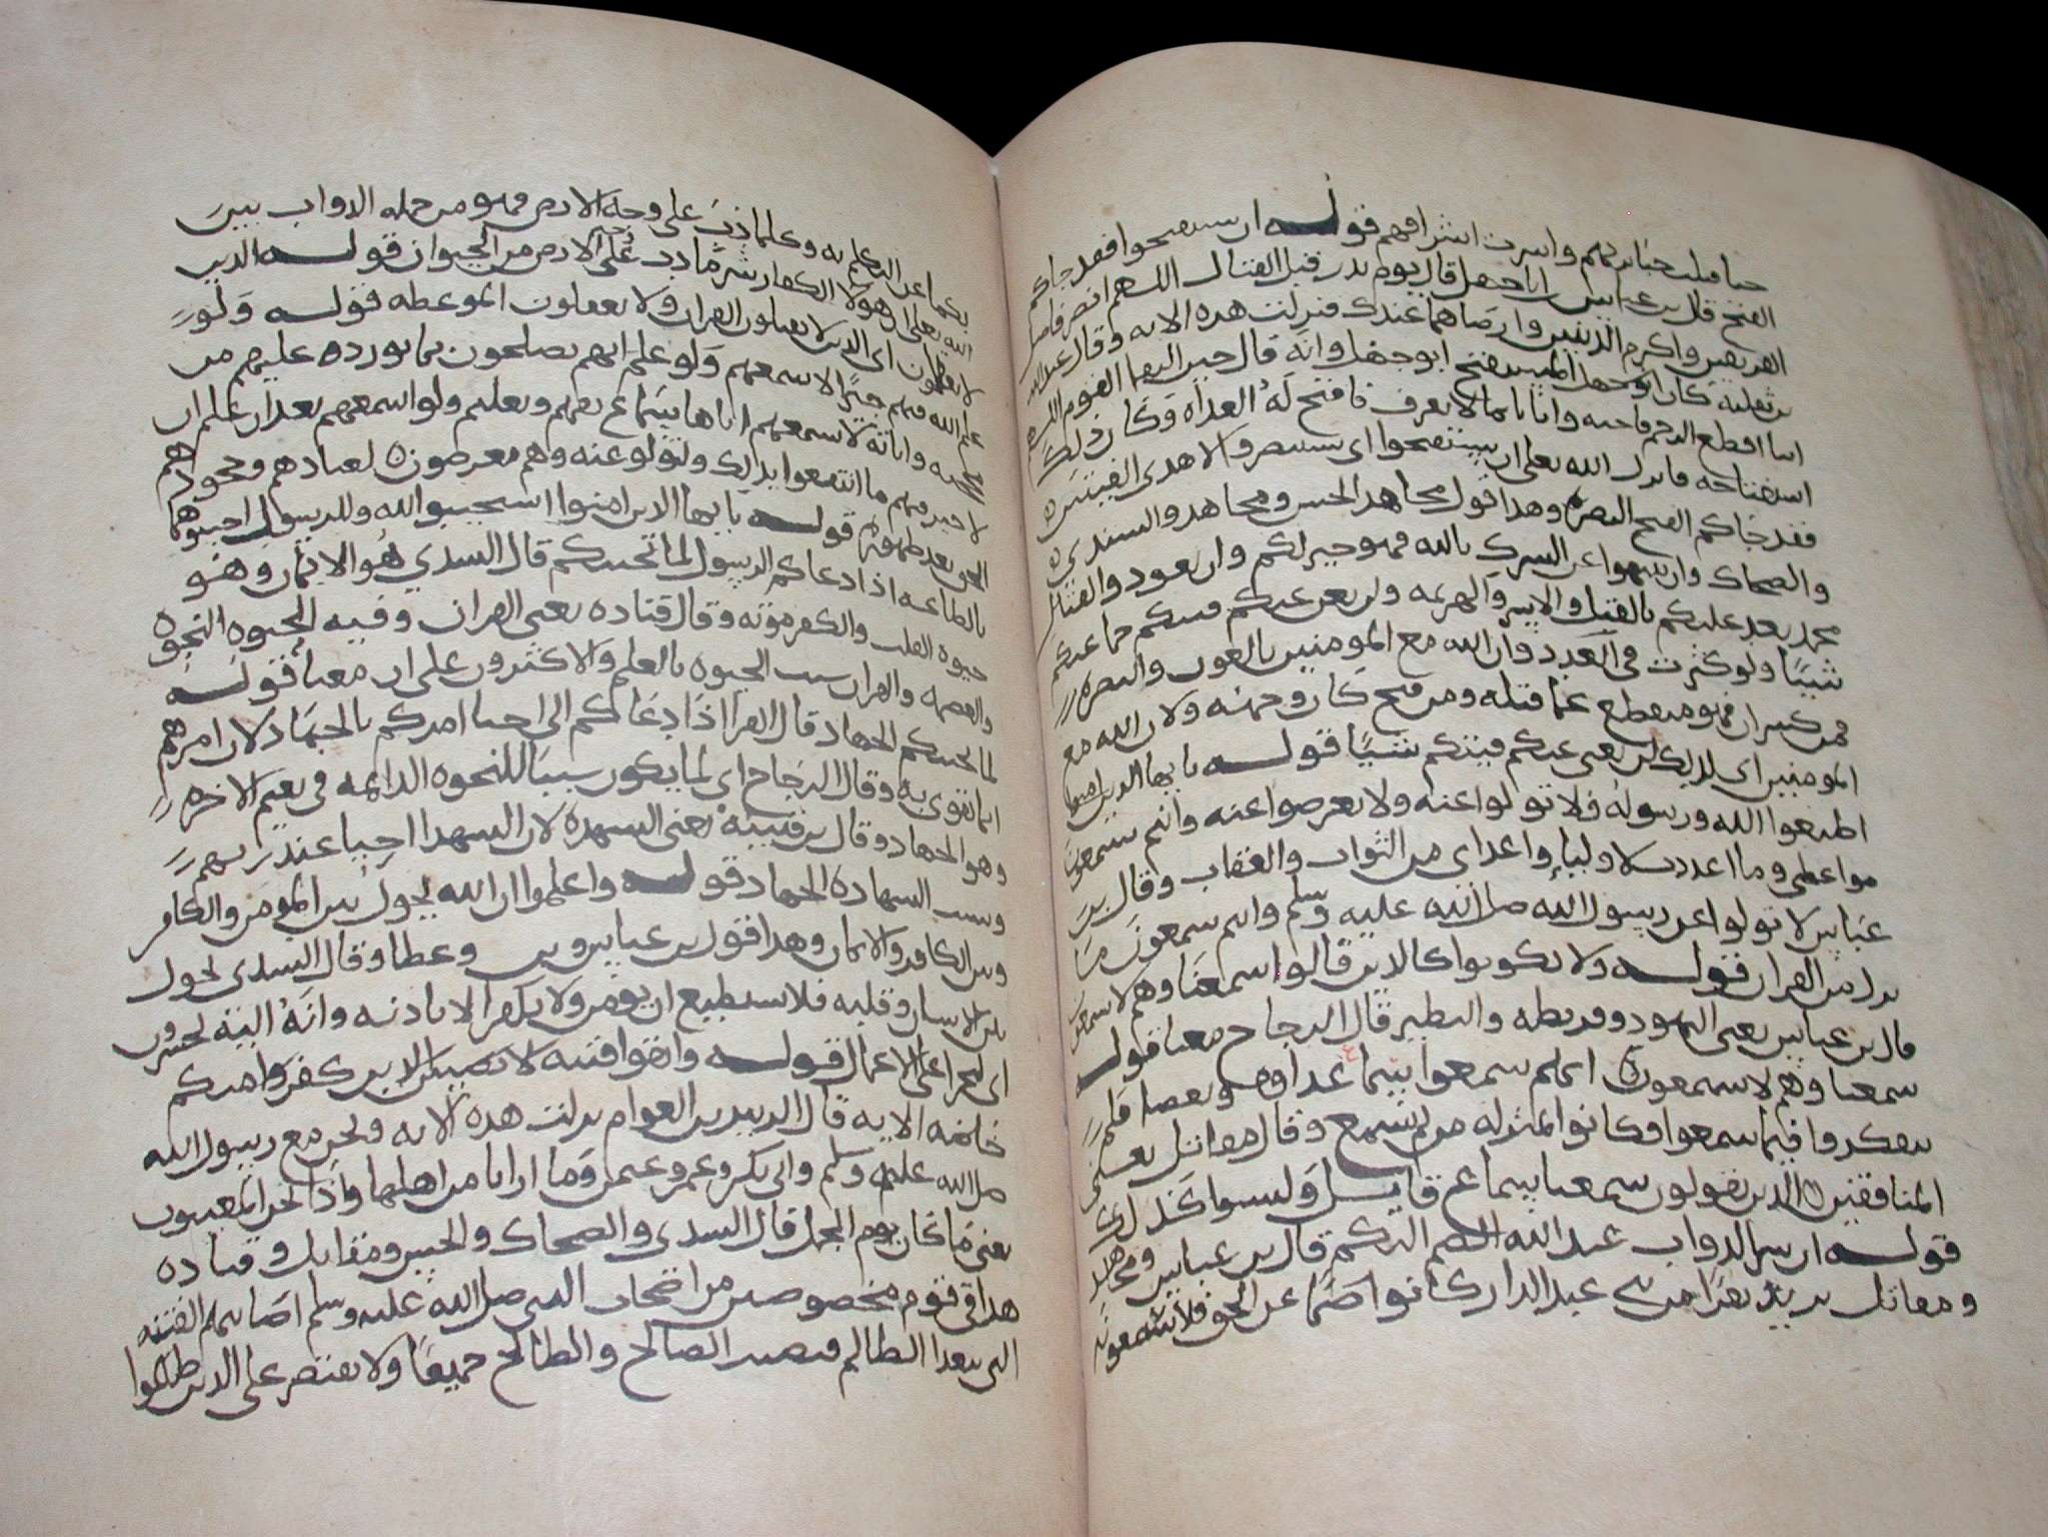 حبا قتلت جبابرتهم واسرت اشرافهم قوله ان تستفتحوا فقد جاكم
الفتح قال بن عباس ان ابا جهل قال يوم بدر قبل القتال اللهم انصر افضل
الدينين وارضاهما عندك فنزلت هذه الايه وقال عبد الله
بن ثعلبة كان ابو جهل المستفتح ابو جهل وانه قال حين التقا القوم اللهم
اينا اقطع للرحم واتانا بما لا يعرف فافتح له الغداه وكان ذلك
استفتاحه فانزل الله تعلى ان تستفتحوا اى تستنصروا لاهدى الفيتين
فقد جاكم الفتح النصره وهذا قول مجاهد الحسن ومجاهد والسدي
والضحاك وان تنتهوا عن الشرك بالله فهو خير لكم وان تعودوا لقتال
محمد نعد عليكم بالقتل والاسر والهزيمه ولن تغن عنكم فيتكم جماعتكم
شييا ولو كثرت في العدد وان الله مع المومنين بالعون والنصره
فمن كسر ان فهو منقطع عما قبله ومن فتح كان وجهه ولان الله مع
المومنين اى لذلك لن تغنى عنكم فيتكم شييا قوله يا ايها الذين امنوا
اطيعوا الله ورسوله فلا تولوا عنه ولا تعرضوا عنه وانتم تسمعون
مواعظى وما اعددت لاوليا واعداى من الثواب والعقاب وقال بن
عباس لا تولوا عن رسول الله صلى الله عليه وسلم وانتم تسمعون ما
نزل من القران قوله ولا تكونوا كالذين قالوا سمعنا وهم لا يسمعون
قال بن عباس يعنى اليهود وقريظه والنضير قال الزجاج معنا قوله
سمعنا وهم لا يسمعون اى لم سمعوا
يتفكروا فيما سمعوا فكانوا بمنزله من لم يسمع وقال مقاتل يعنى
المنافقين الذين يقولون سمعنا وليسوا كذلك
قوله ان شر الدواب عند الله الصم البكم قال بن عباس ومجاهد
ومقاتل يريد نفرا من بنى عبد الدار كانوا صما عن الحق فلا يسمعون
بكما عن التكلم به وكلما دب على وجه الارض فهو من جمله الدواب بين
الله تعلى ان هولا الكفار شر ما دب على الارض من الحيوان قوله الذين
لا يعقلون اى الذين لا يقبلون القران ولا يعقلون الموعظه قوله ولو
علم الله فيهم خيرا لاسمعهم ولو علم انهم يصلحون بما نورده عليهم من
حججه واياته لاسمعهم اياها سماع تفهم وتعليم ولو اسمعهم بعد ان علم ان
لا خير فيهم ما انتفعوا بذلك ولتولو عنه وهم معرضون لعنادهم وجحودهم
الحق بعد ظهوره قوله يا ايها الذين امنوا استجيبوا لله وللرسول اجيبوهما
بالطاعه اذا دعاكم الرسول لما يحييكم قال السدي هو الايمان وهو
حيوه القلب والكفر موته وقال قتاده يعنى القران وفيه الحيوه النجوه
والعصمه والقران سبب الحيوه بالعلم والاكثرون على ان معنا قوله
لما يحييكم الجهاد قال الفرا اذا دعاكم الى احيا امركم بالجهاد لان امرهم
انما تقوى به وقال الزجاج اى لما يكون سببا للنحوه الدايمه فى نعيم الاخره
وهو الجهاد وقال بن قتيبه يعنى الشهده لان الشهدا احيا عند ربهم
وسبب الشهاده الجهاد قوله واعلموا ان الله يحول بين المومن والكافر
وبين الكافر والايمان وهذا قول بن عباس وعطا وقال السدى يحول
بين الانسان وقلبه فلا يستطيع ان يومن ولا يكفر الا باذنه وانه اليه تحشرون
اى للجزا على الاعمال قوله واتقوا فتنه لا تصيبن الذين كفروا منكم
خاصه الايه قال الزبير بن العوام نزلت هذه الايه ونحن مع رسول الله
صلى الله عليه وسلم وابى بكر وعمر وعثمن وما ارانا من اهلها واذا نحن المعنيون
يعنى ما كان يوم الجمل قال السدى والضحاك والحسن ومقاتل وقتاده
هذا فى قوم مخصوصين من اصحاب النبى صلى الله عليه وسلم اصابتهم الفتنه
الى بعد الظالم فتصيب الصالح والطالح جميعا ولا تقتصر على الذين ظلموا